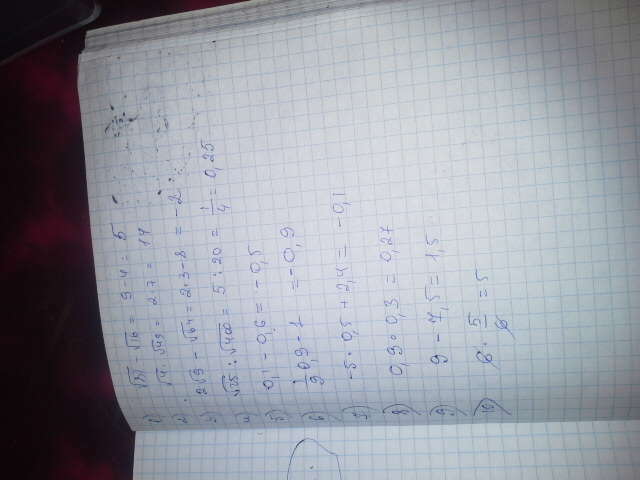 1) √81 - √16 = 9-4 = 5
2) √4 · √49 = 2·7 = 14
3) 2√9 - √64 = 2·3-8 = -2
4) √25 : √400 = 5 : 20 = 1/4 = 0,25
5) 0,1 - 0,6 = -0,5
6) 1/9 0,9-1 = -0,9
7) -5 · 0,5 + 2,4 = -0,1
8) 0,9 · 0,3 = 0,27
9) 9 - 7,5 = 1,5
10) 6 · 5/6 = 5